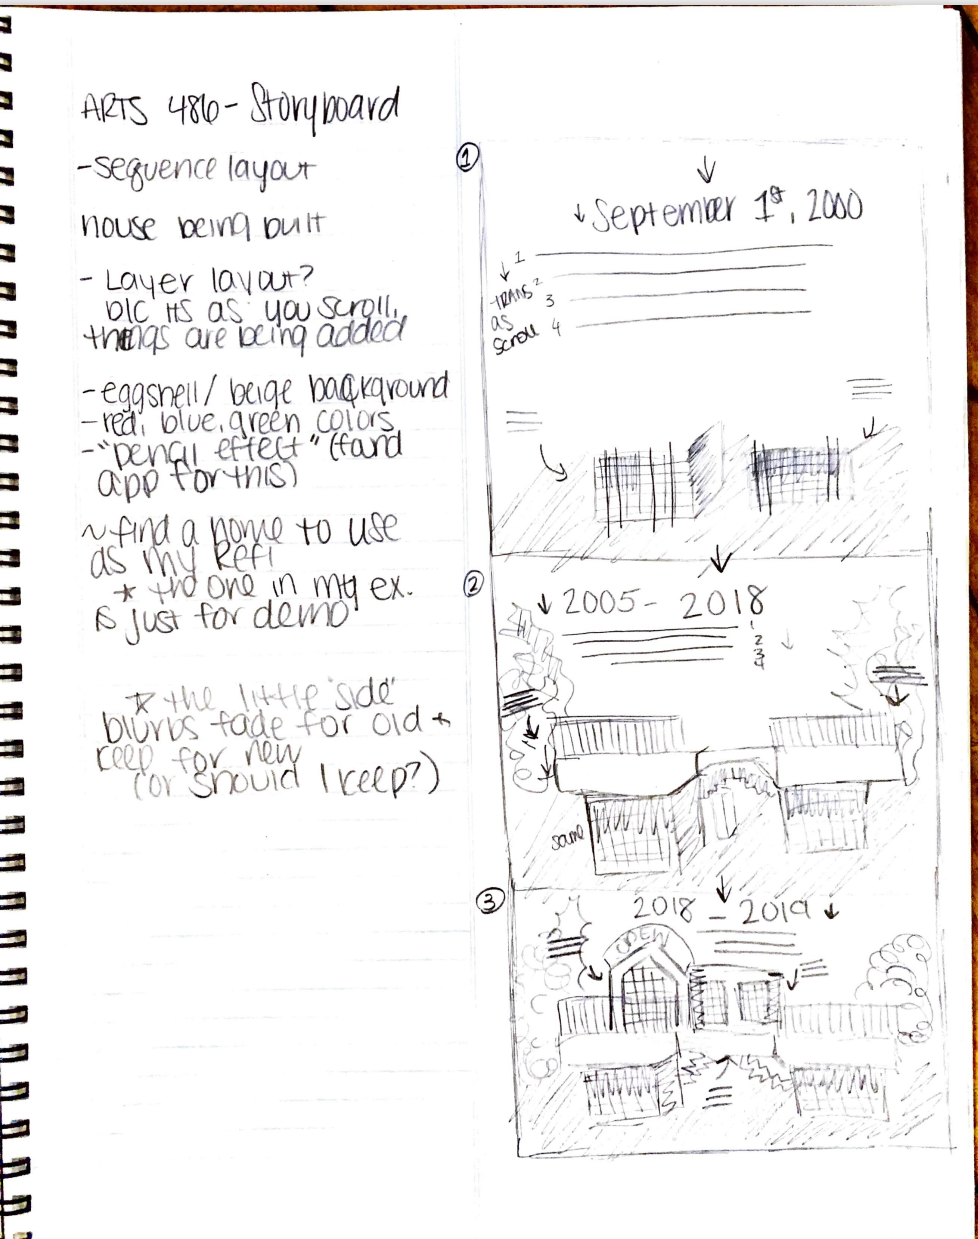 ARTS 486 - Storyboard
- sequence layout
house being built
- Layer layout?
b/c its as you scroll,
things are being added
- eggshell / beige background
- red, blue, green colors
- "pencil effect" (find
app for this)
~ find a home to use
as my Ref!
* the one in my ex.
is just for demo
* the little "side"
blurbs fade for old +
keep for new
(or should I keep?)
①
↓
↓ September 1st, 2000
1
2
3
4
↓
TRANS
as
scroll
↓
②
↓ 2005 - 2018
1
2
3
4
↓
same
↓
③
2018 - 2019 ↓